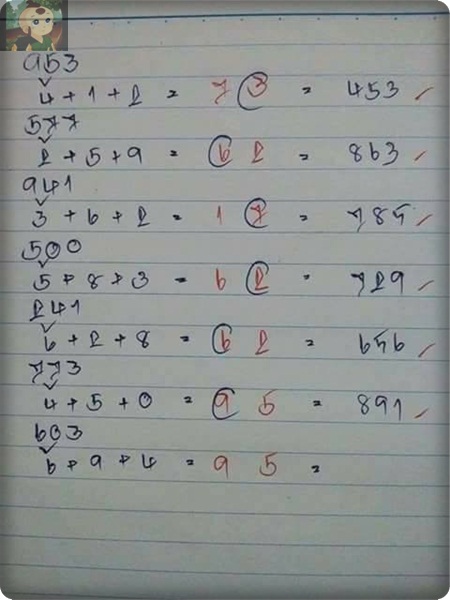 953
4 + 1 + 2 = 7 3 = 453
577
2 + 5 + 9 = 6 2 = 863
941
3 + 6 + 2 = 1 7 = 785
500
5 + 8 + 3 = 6 2 = 729
241
6 + 2 + 8 = 6 2 = 656
773
4 + 5 + 0 = 9 5 = 891
603
6 + 9 + 4 = 9 5 =